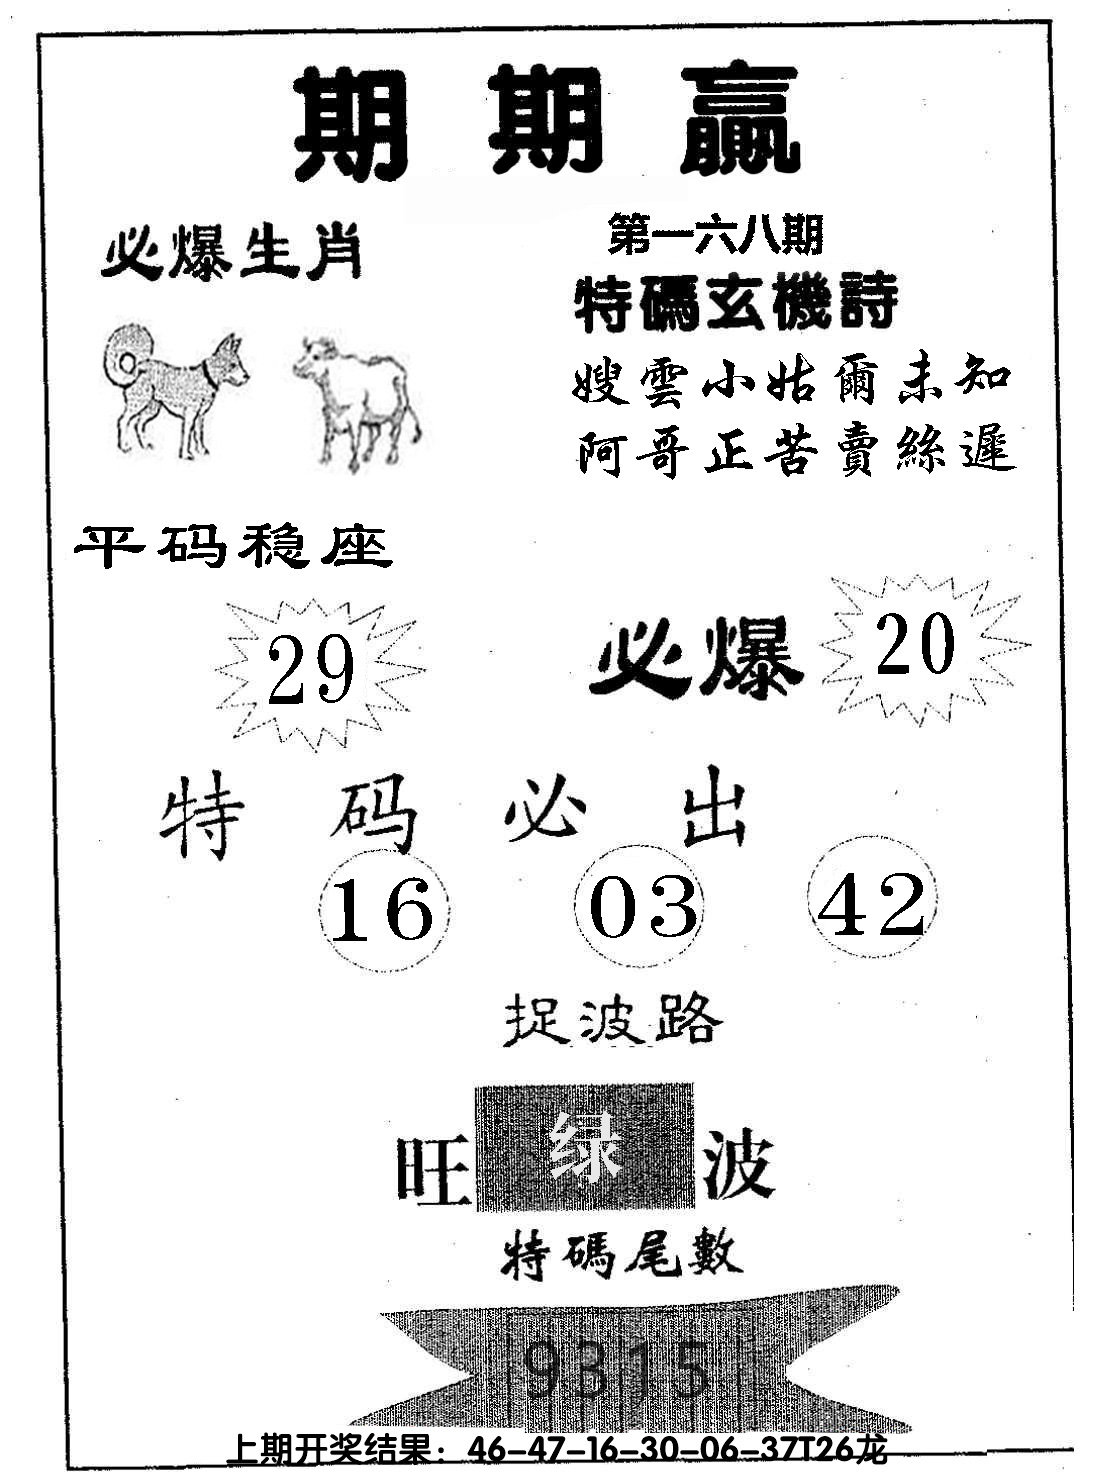 期期贏
必爆生肖
第一六八期
特碼玄機詩
嫂雲小姑爾未知
阿哥正苦賣絲遲
平码稳座
29
必爆 20
特码必出
16 03 42
捉波路
旺绿波
特碼尾數
9315
上期开奖结果：46-47-16-30-06-37T26龙